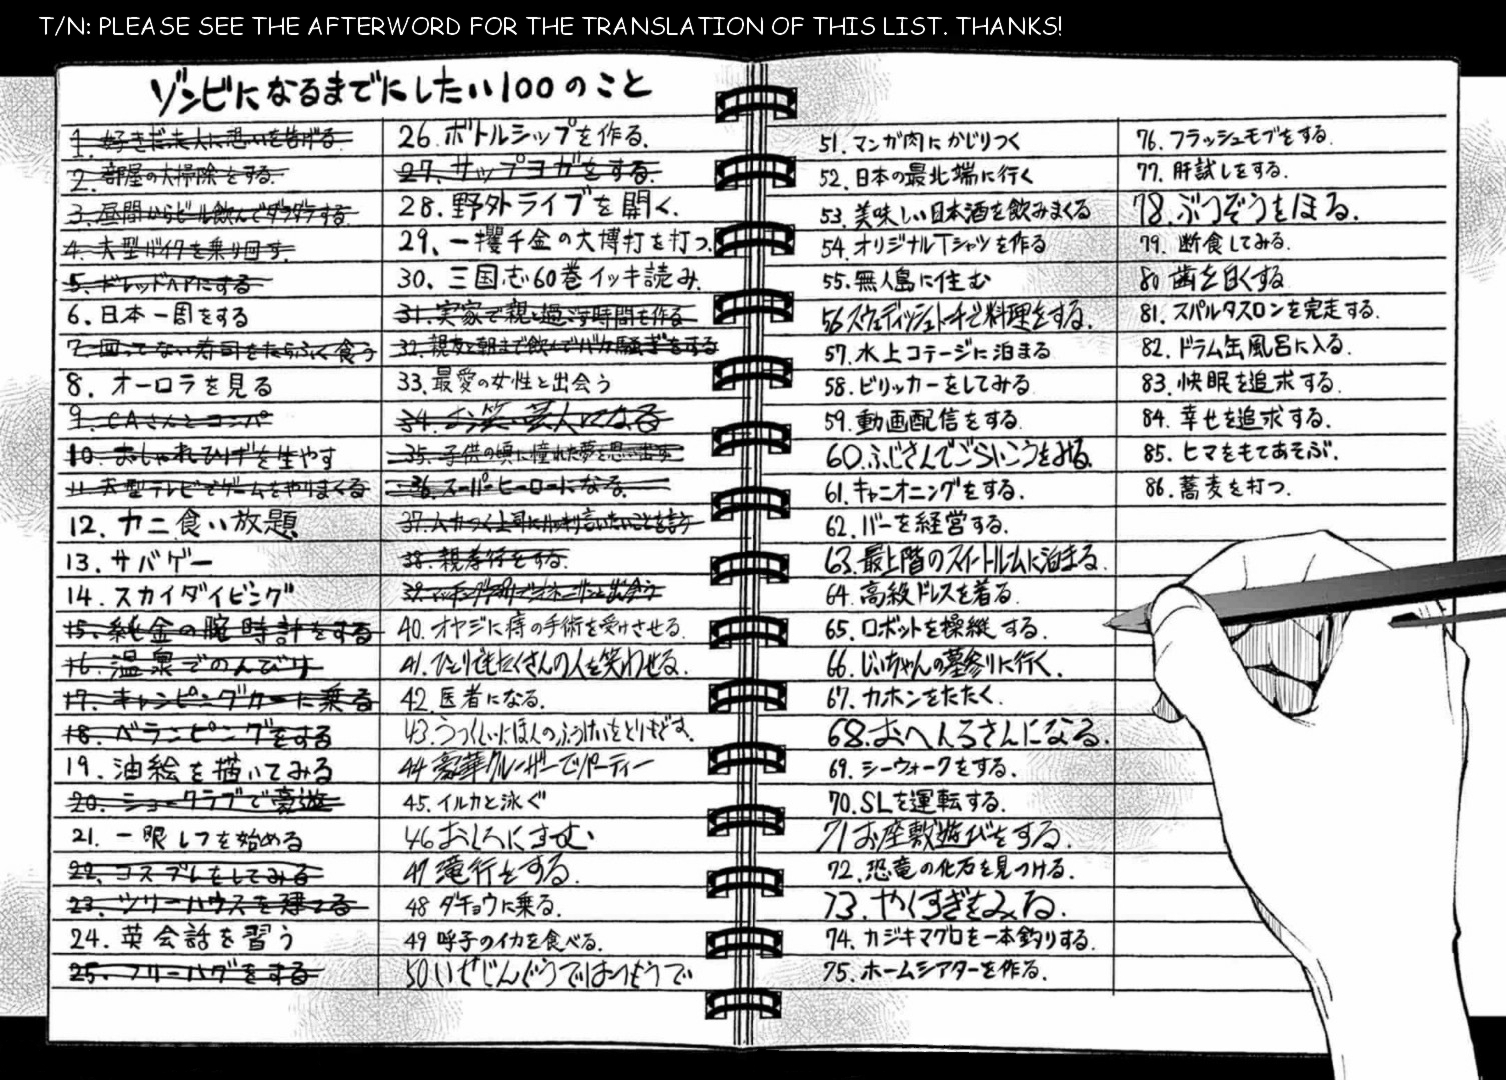 T/N: PLEASE SEE THE AFTERWORD FOR THE TRANSLATION OF THIS LIST. THANKS!
ゾンビになるまでにしたい100のこと
1. 好きだった人に想いを告げる
2. 部屋の大掃除をする.
3. 昼間からビール飲んでダラダラする
4. 大型バイクを乗り回す.
5. ドレッドヘアにする
6. 日本一周をする
7. 回ってない寿司をたらふく食う
8. オーロラを見る
9. CAさんとコンパ
10. おしゃれひげを生やす
11. 大型テレビでゲームをやりまくる
12. カニ食い放題
13. サバゲー
14. スカイダイビング
15. 純金の腕時計をする
16. 温泉でのんびり
17. キャンピングカーに乗る
18. ベランピングをする
19. 油絵を描いてみる
20. ショークラブで豪遊
21. 一眼レフを始める
22. コスプレをしてみる
23. ツリーハウスを建てる
24. 英会話を習う
25. フリーハグをする
26. ボトルシップを作る.
27. サップヨガをする.
28. 野外ライブを開く.
29、一攫千金の大博打を打つ.
30. 三国志60巻イッキ読み.
31. 実家で親と過ごす時間を作る
32. 親友と朝まで飲んでバカ騒ぎをする
33. 最愛の女性と出会う
34. お笑い芸人になる
35. 子供の頃に憧れた夢を思い出す
36. スーパーヒーローになる.
37. ムカつく上司にハッキリ言いたいことを言う
38. 親孝行をする.
39. マッチングアプリで と出会う
40. オヤジに痔の手術を受けさせる.
41. ひとりでもたくさんの人を笑わせる.
42. 医者になる.
43. うつくしいにほんのふうけいをとりもどす.
44 豪華クルーザーでパーティー
45. イルカと泳ぐ
46 おしろにすむ
47 滝行をする.
48 ダチョウに乗る.
49 呼子のイカを食べる.
50 いせじんぐうではつもうで
51. マンガ肉にかじりつく
52. 日本の最北端に行く
53. 美味しい日本酒を飲みまくる
54. オリジナルTシャツを作る
55. 無人島に住む
56 スウェディッシュトーチで料理をする.
57. 水上コテージに泊まる
58. ビリッカーをしてみる
59. 動画配信をする.
60. ふじさんでごらいこうをみる.
61. キャニオニングをする.
62. バーを経営する.
63. 最上階のスイートルームに泊まる.
64. 高級ドレスを着る.
65. ロボットを操縦する.
66. じいちゃんの墓参りに行く.
67. カホンをたたく.
68. おへんろさんになる.
69. シーウォークをする.
70. SLを運転する.
71 お座敷遊びをする.
72. 恐竜の化石を見つける.
73. やくすぎをみる.
74. カジキマグロを一本釣りする.
75. ホームシアターを作る.
76. フラッシュモブをする.
77. 肝試しをする.
78. ぶつぞうをほる.
79. 断食してみる.
80 歯を白くする
81. スパルタスロンを完走する.
82. ドラム缶風呂に入る.
83. 快眠を追求する.
84. 幸せを追求する.
85. ヒマをもてあそぶ.
86. 蕎麦を打つ.